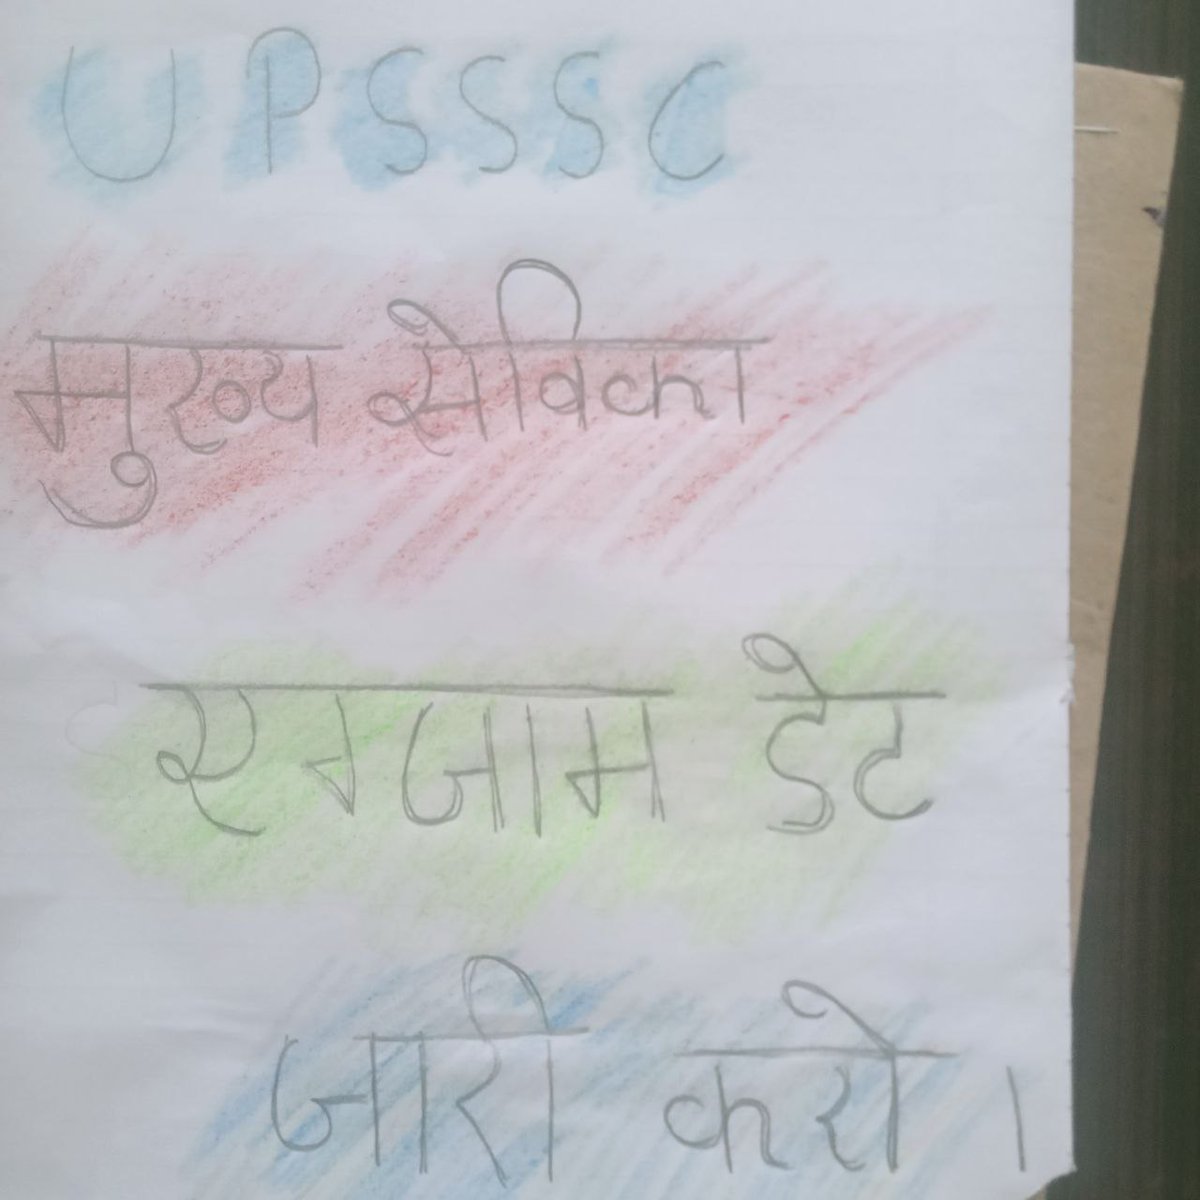 UPSSSC
मुख्य सेविका
एग्जाम डेट
जारी करो ।